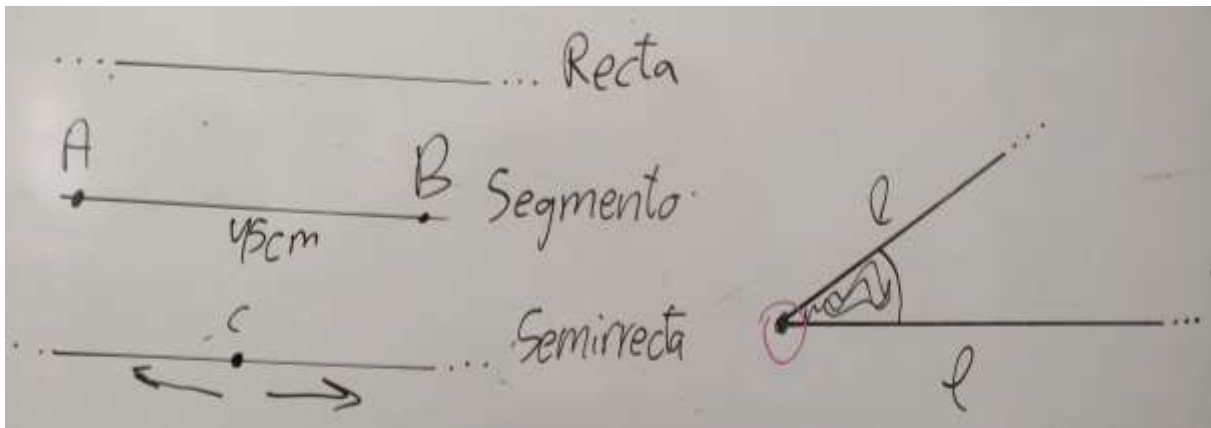 Recta
A
B
Segmento
45cm
C
Semirrecta
l
l